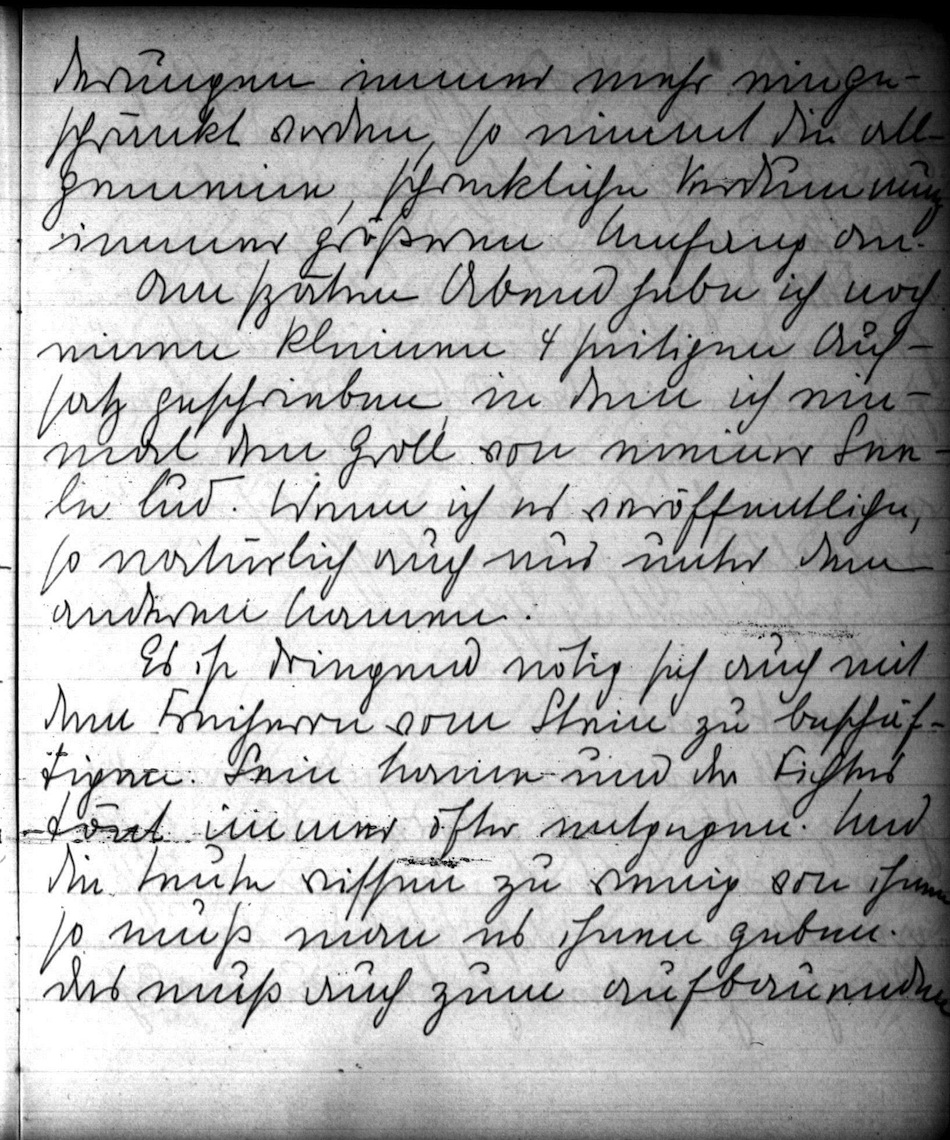 derungen immer mehr einge-
schränkt werden, so nimmt die all-
gemeine, schreckliche Verdummung
immer größeren Umfang an.
Am späten Abend habe ich noch
einen kleinen 4 seitigen Auf-
satz geschrieben, in dem ich ein-
mal den Groll von meiner See-
le lud. Wenn ich es veröffentliche,
so natürlich auch nur unter dem
anderen Namen.
Es ist dringend nötig sich auch mit
dem Freiherrn vom Stein zu beschäf-
tigen. Sein Name und der Fichtes
tönt immer öfter entgegen. Und
die Leute wissen zu wenig von ihnen
so muß man es ihnen geben.
das muß auch zum aufbauenden